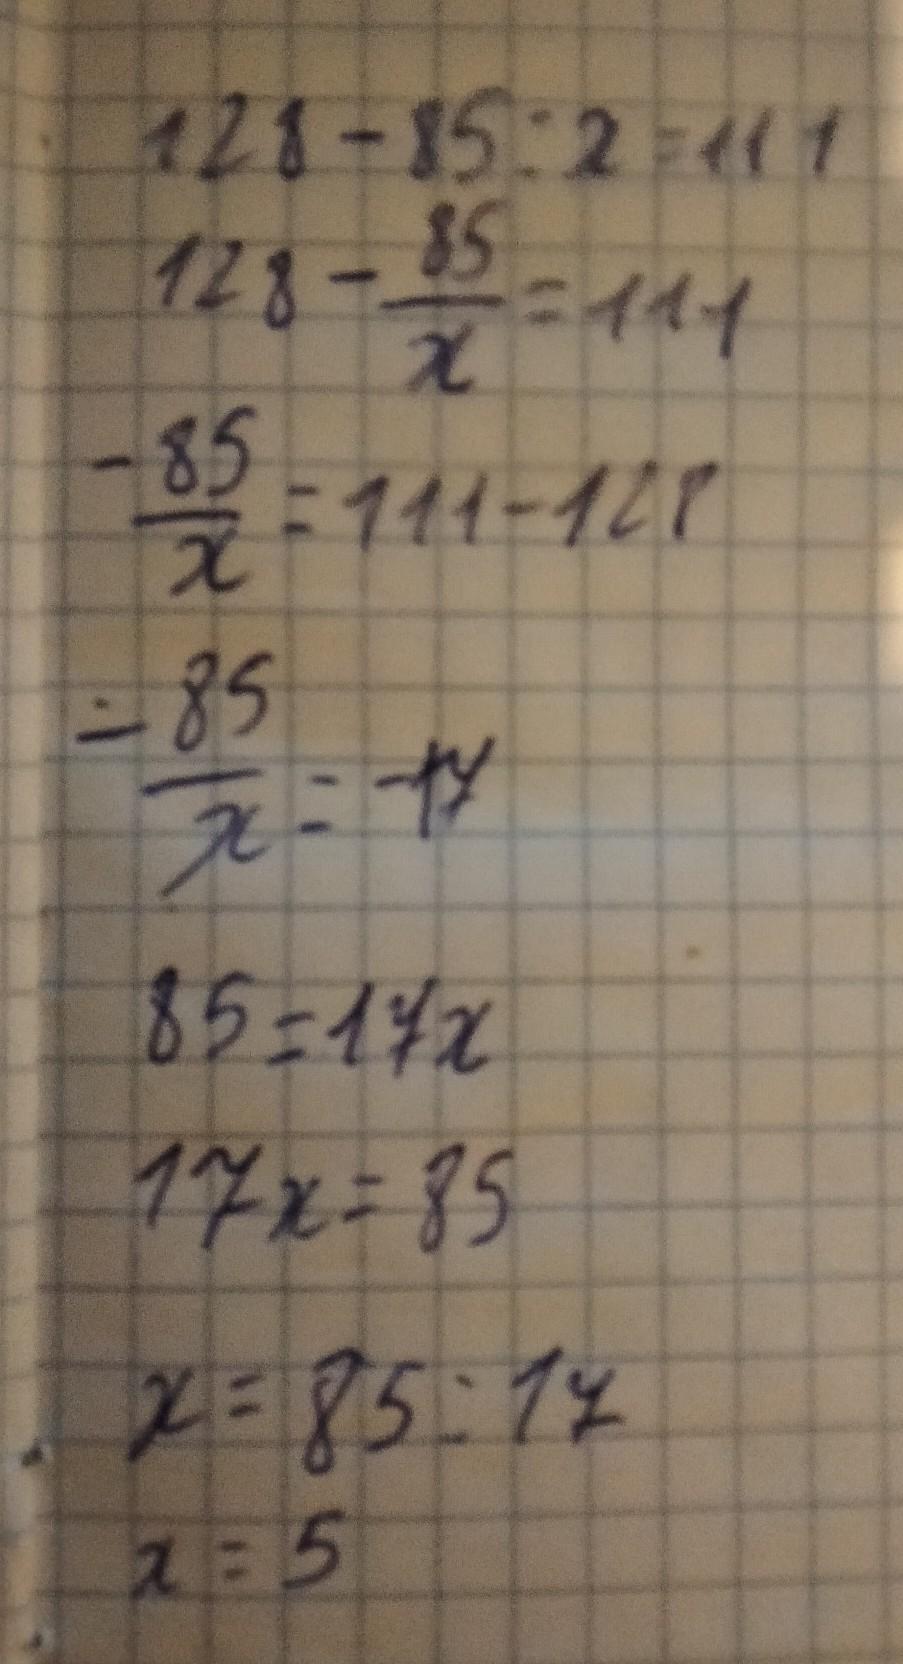 128 - 85 : x = 111
128 - 85/x = 111
- 85/x = 111 - 128
- 85/x = -17
85 = 17x
17x = 85
x = 85 : 17
x = 5